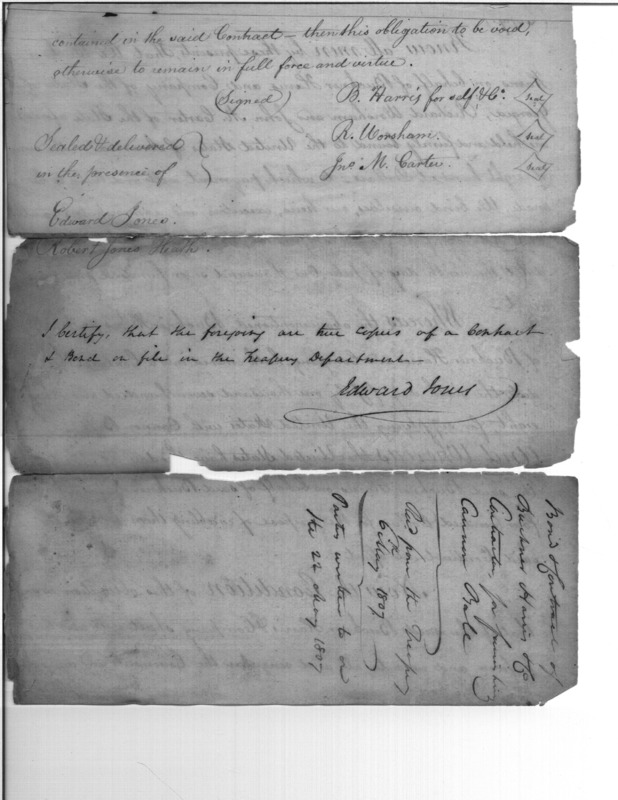 contained in the said Contract — then this obligation to be void,
otherwise to remain in full force and virtue.
(Signed) B. Harris for self & Co. Seal
Sealed & delivered R. Worsham. Seal
in the presence of Jno M. Carter. Seal
Edward Jones.
Robert Jones Heath.
I Certify, that the foregoing are true copies of a Contract
& Bond on file in the Treasury Department—
Edward Jones
Bond & Contract of
Buckner Harris & Co
Contractor for furnishing
Cannon Ball
Recd from the Treasury
6th May 1807
Parties written to on
the 22 May 1807